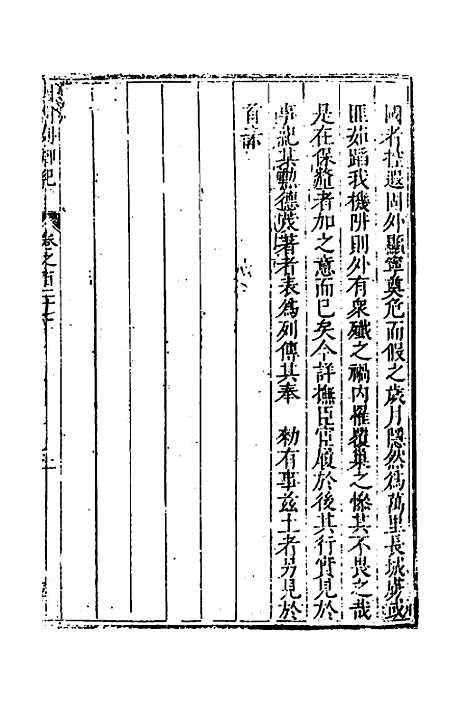 國者控遐固外顯寧奠危而假之歲月隱然爲萬里長城歲或
匪茹蹈我機阱則外有衆殲之禍內罹覆巢之慘其不畏之哉
是在保釐者加之意而已矣今詳撫臣宦履於後其行實見於
事紀其勲德茂著者表爲列傳其奉 勑有事兹土者另見於
首
卷之百二十七